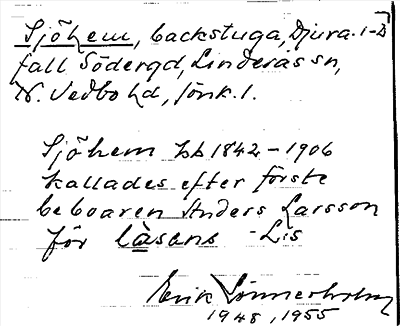 Sjöhem, backstuga, Djura. 1-D
fall Södergd, Linderås sn,
N. Vedbo hd, Jönk. l.
Sjöhem hl 1842-1906
kallades efter förste
beboaren Anders Larsson
för låsens -Lis
Erik Lönnerholm
1948, 1955